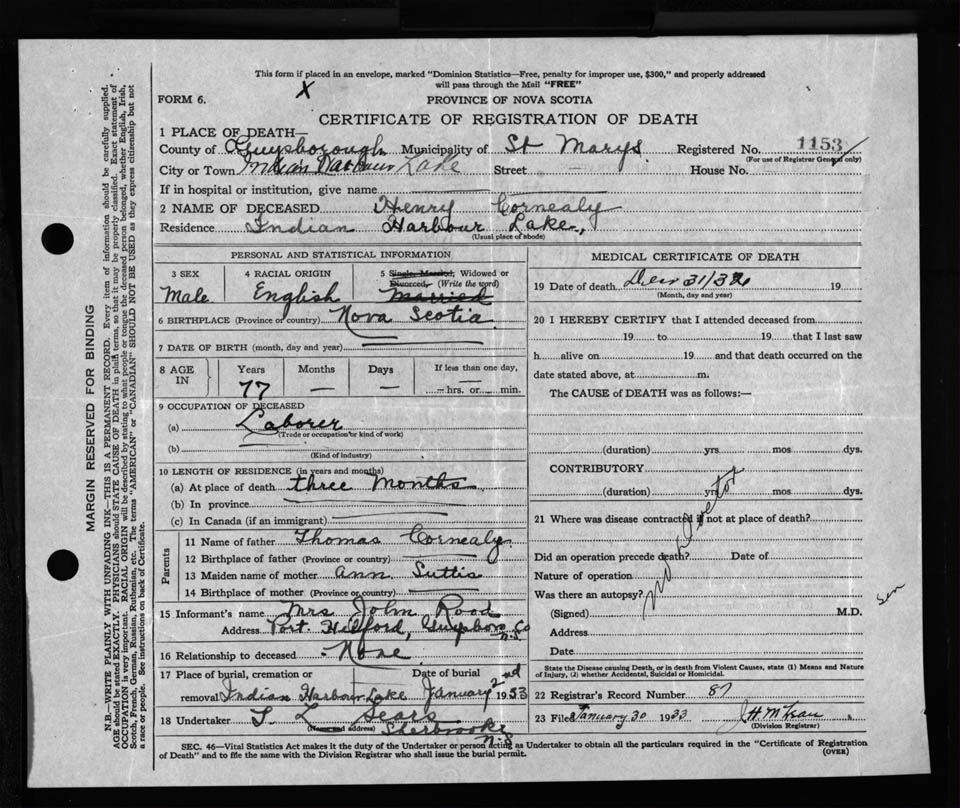 This form if placed in an envelope, marked "Dominion Statistics—Free, penalty for improper use, $300," and properly addressed
will pass through the Mail "FREE"
X
FORM 6.
PROVINCE OF NOVA SCOTIA
CERTIFICATE OF REGISTRATION OF DEATH
1 PLACE OF DEATH—
County of Guysborough Municipality of St Marys Registered No. 1153
(For use of Registrar General only)
City or Town Indian Harbour Lake Street — House No.
If in hospital or institution, give name
2 NAME OF DECEASED Henry Cornealy
Residence Indian Harbour Lake,
(Usual place of abode)
PERSONAL AND STATISTICAL INFORMATION
3 SEX Male
4 RACIAL ORIGIN English
5 Single, Married, Widowed or
Divorced, (Write the word)
Married
6 BIRTHPLACE (Province or country) Nova Scotia
7 DATE OF BIRTH (month, day and year)
8 AGE IN
Years Months Days If less than one day,
77 — — — hrs. or min.
9 OCCUPATION OF DECEASED
(a) Laborer
(Trade or occupation or kind of work)
(b)
(Kind of industry)
10 LENGTH OF RESIDENCE (in years and months)
(a) At place of death three months
(b) In province
(c) In Canada (if an immigrant)
Parents
11 Name of father Thomas Cornealy
12 Birthplace of father (Province or country)
13 Maiden name of mother Ann. Suttis
14 Birthplace of mother (Province or country)
15 Informant's name Mrs John Rood
Address Port Hilford, Guysboro Co
N.S.
16 Relationship to deceased None
17 Place of burial, cremation or Date of burial
removal Indian Harbour Lake January 2nd 1933
18 Undertaker T L Sears
(Name and address) Sherbrooke
N.S.
MEDICAL CERTIFICATE OF DEATH
19 Date of death Dec 31/32 19
(Month, day and year)
20 I HEREBY CERTIFY that I attended deceased from
19 to 19 that I last saw
h alive on 19 and that death occurred on the
date stated above, at m.
The CAUSE of DEATH was as follows:—
(duration) yrs. mos dys.
CONTRIBUTORY
(duration) yrs mos dys.
21 Where was disease contracted if not at place of death?
Did an operation precede death? Date of
Nature of operation
Was there an autopsy?
no doctor
(Signed) M.D.
Sen
Address
Date
State the Disease causing Death, or in death from Violent Causes, state (1) Means and Nature
of Injury, (2) whether Accidental, Suicidal or Homicidal.
22 Registrar's Record Number 87
23 Filed January 30 1933
(Division Registrar)
SEC. 46—Vital Statistics Act makes it the duty of the Undertaker or person acting as Undertaker to obtain all the particulars required in the "Certificate of Registration
of Death" and to file the same with the Division Registrar who shall issue the burial permit. (OVER)
MARGIN RESERVED FOR BINDING
N.B.—WRITE PLAINLY WITH UNFADING INK—THIS IS A PERMANENT RECORD. Every item of information should be carefully supplied.
AGE should be stated EXACTLY. PHYSICIANS should STATE CAUSE OF DEATH in plain terms, so that it may be properly classified. Exact statement of
OCCUPATION is very important. RACIAL ORIGIN will be described by stating to what people or tongue the deceased person belonged, whether English, Irish,
Scotch, French, German, Russian, Ruthenian, etc. The terms "AMERICAN" or "CANADIAN" SHOULD NOT BE USED as they express citizenship but not
a race or people. See instructions on back of Certificate.